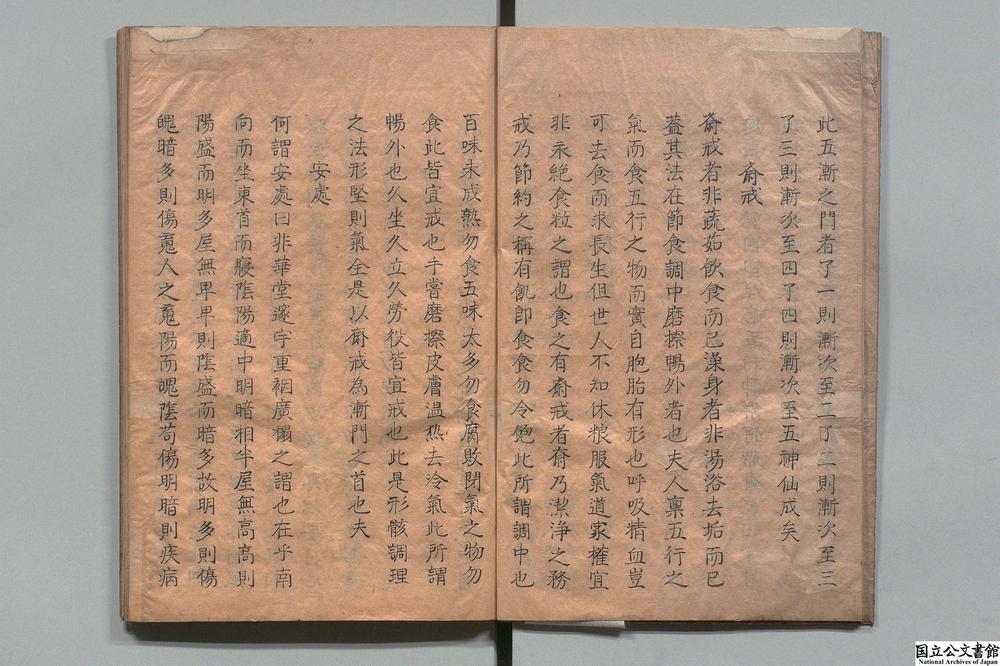 此五漸之門者了一則漸次至二了二則漸次至三
了三則漸次至四了四則漸次至五神仙成矣
齋戒
齋戒者非蔬茹飲食而已澡身者非湯浴去垢而已
蓋其法在節食調中磨擦暢外者也夫人稟五行之
氣而食五行之物而實自胞胎有形也呼吸精血豈
可去食而求長生但世人不知休粮服氣道家權宜
非永絕食粒之謂也食之有齋戒者齋乃潔淨之務
戒乃節約之稱有飢即食食勿令飽此所謂調中也
百味未成熟勿食五味太多勿食腐敗閉氣之物勿
食此皆宜戒也手嘗磨擦皮膚温热去冷氣此所謂
暢外也久坐久立久勞役皆宜戒也此是形骸調理
之法形堅則氣全是以齋戒為漸門之首也夫
安處
何謂安處曰非華堂邃宇重裀廣榻之謂也在乎南
向而坐東首而寢陰陽適中明暗相半屋無高高則
陽盛而明多屋無卑卑則陰盛而暗多故明多則傷
魄暗多則傷䰟人之䰟陽而魄陰苟傷明暗則疾病
国立公文書館
National Archives of Japan